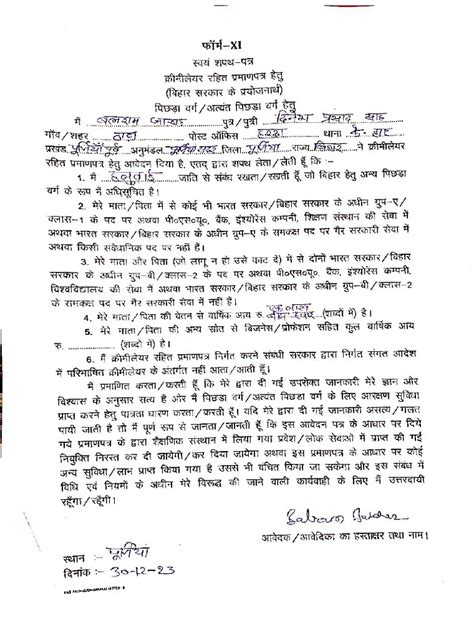 फॉर्म-XI
स्वयं शपथ-पत्र
क्रीमीलेयर रहित प्रमाणपत्र हेतु
(बिहार सरकार के प्रयोजनार्थ)
पिछड़ा वर्ग/अत्यंत पिछड़ा वर्ग हेतु
मैं बलराम पुत्र/पुत्री दिनेश प्रसाद साह
गाँव/शहर पोस्ट ऑफिस हरदा थाना के० हाट
प्रखंड पूर्णियाँ पूर्व अनुमंडल जिला पूर्णियाँ राज्य बिहार ने क्रीमीलेयर
रहित प्रमाणपत्र हेतु आवेदन दिया है, एतद् द्वारा शपथ लेता/लेती हूँ कि :-
1. मैं हलुवाई जाति से संबंध रखता/रखती हूँ जो बिहार हेतु अन्य पिछड़ा
वर्ग के रूप में अधिसूचित है।
2. मेरे माता/पिता में से कोई भी भारत सरकार/बिहार सरकार के अधीन ग्रुप-ए/
क्लास-1 के पद पर अथवा पी०एस०यू०, बैंक, इंश्योरेंस कम्पनी, शिक्षण संस्थान की सेवा में
अथवा भारत सरकार/बिहार सरकार के अधीन ग्रुप-ए के समकक्ष पद पर गैर सरकारी सेवा में
अथवा किसी संवैधानिक पद पर नहीं है।
3. मेरे माता और पिता (जो लागू न हो उसे काट दें) में से दोनों भारत सरकार/बिहार
सरकार के अधीन ग्रुप-बी/क्लास-2 के पद पर अथवा पी०एस०यू०, बैंक, इंश्योरेंस कम्पनी,
विश्वविद्यालय की सेवा में अथवा भारत सरकार/बिहार सरकार के अधीन ग्रुप-बी/क्लास-2
के समकक्ष पद पर गैर सरकारी सेवा में नहीं है।
4. मेरे माता/पिता की वेतन से वार्षिक आय रु. एक लाख (शब्दों में) है।
5. मेरे माता/पिता की अन्य स्रोत से बिजनेस/प्रोफेशन सहित कुल वार्षिक आय
रु. ................ (शब्दों में) है।
6. मैं क्रीमीलेयर रहित प्रमाणपत्र निर्गत करने संबंधी सरकार द्वारा निर्गत संगत आदेश
में परिभाषित क्रीमीलेयर के अंतर्गत नहीं आता/आती हूँ।
मैं प्रमाणित करता/करती हूँ कि मेरे द्वारा दी गई उपरोक्त जानकारी मेरे ज्ञान और
विश्वास के अनुसार सत्य है और मैं पिछड़ा वर्ग/अत्यंत पिछड़ा वर्ग के लिए आरक्षण सुविधा
प्राप्त करने हेतु पात्रता धारण करता/करती हूँ। यदि मेरे द्वारा दी गई जानकारी असत्य/गलत
पायी जाती है तो मैं पूर्ण रूप से जानता/जानती हूँ कि इस आवेदन पत्र के आधार पर दिये
गये प्रमाणपत्र के द्वारा शैक्षणिक संस्थान में लिया गया प्रवेश/लोक सेवाओं में प्राप्त की गई
नियुक्ति निरस्त कर दी जायेगी/कर दिया जायेगा अथवा इस प्रमाणपत्र के आधार पर कोई
अन्य सुविधा/लाभ प्राप्त किया गया है उससे भी वंचित किया जा सकेगा और इस संबंध में
विधि एवं नियमों के अधीन मेरे विरूद्ध की जाने वाली कार्यवाही के लिए मैं उत्तरदायी
रहूँगा/रहूँगी।
आवेदक/आवेदिका का हस्ताक्षर तथा नाम।
स्थान :- पूर्णियां
दिनांक :- 30-12-23